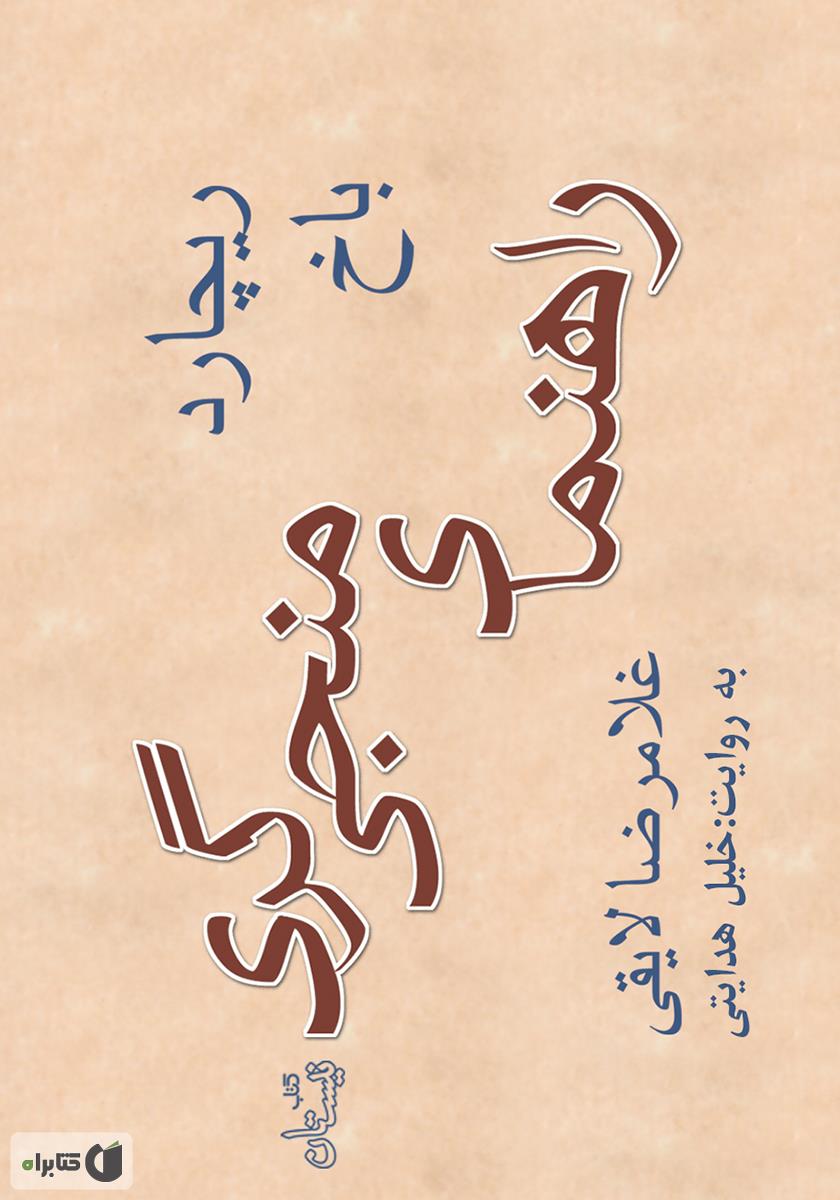 ریچارد
باخ
راهنمای
منجی گری
غلامرضا لایقی
به روایت: خلیل هدایتی
کتاب
نیستان
کتابراه